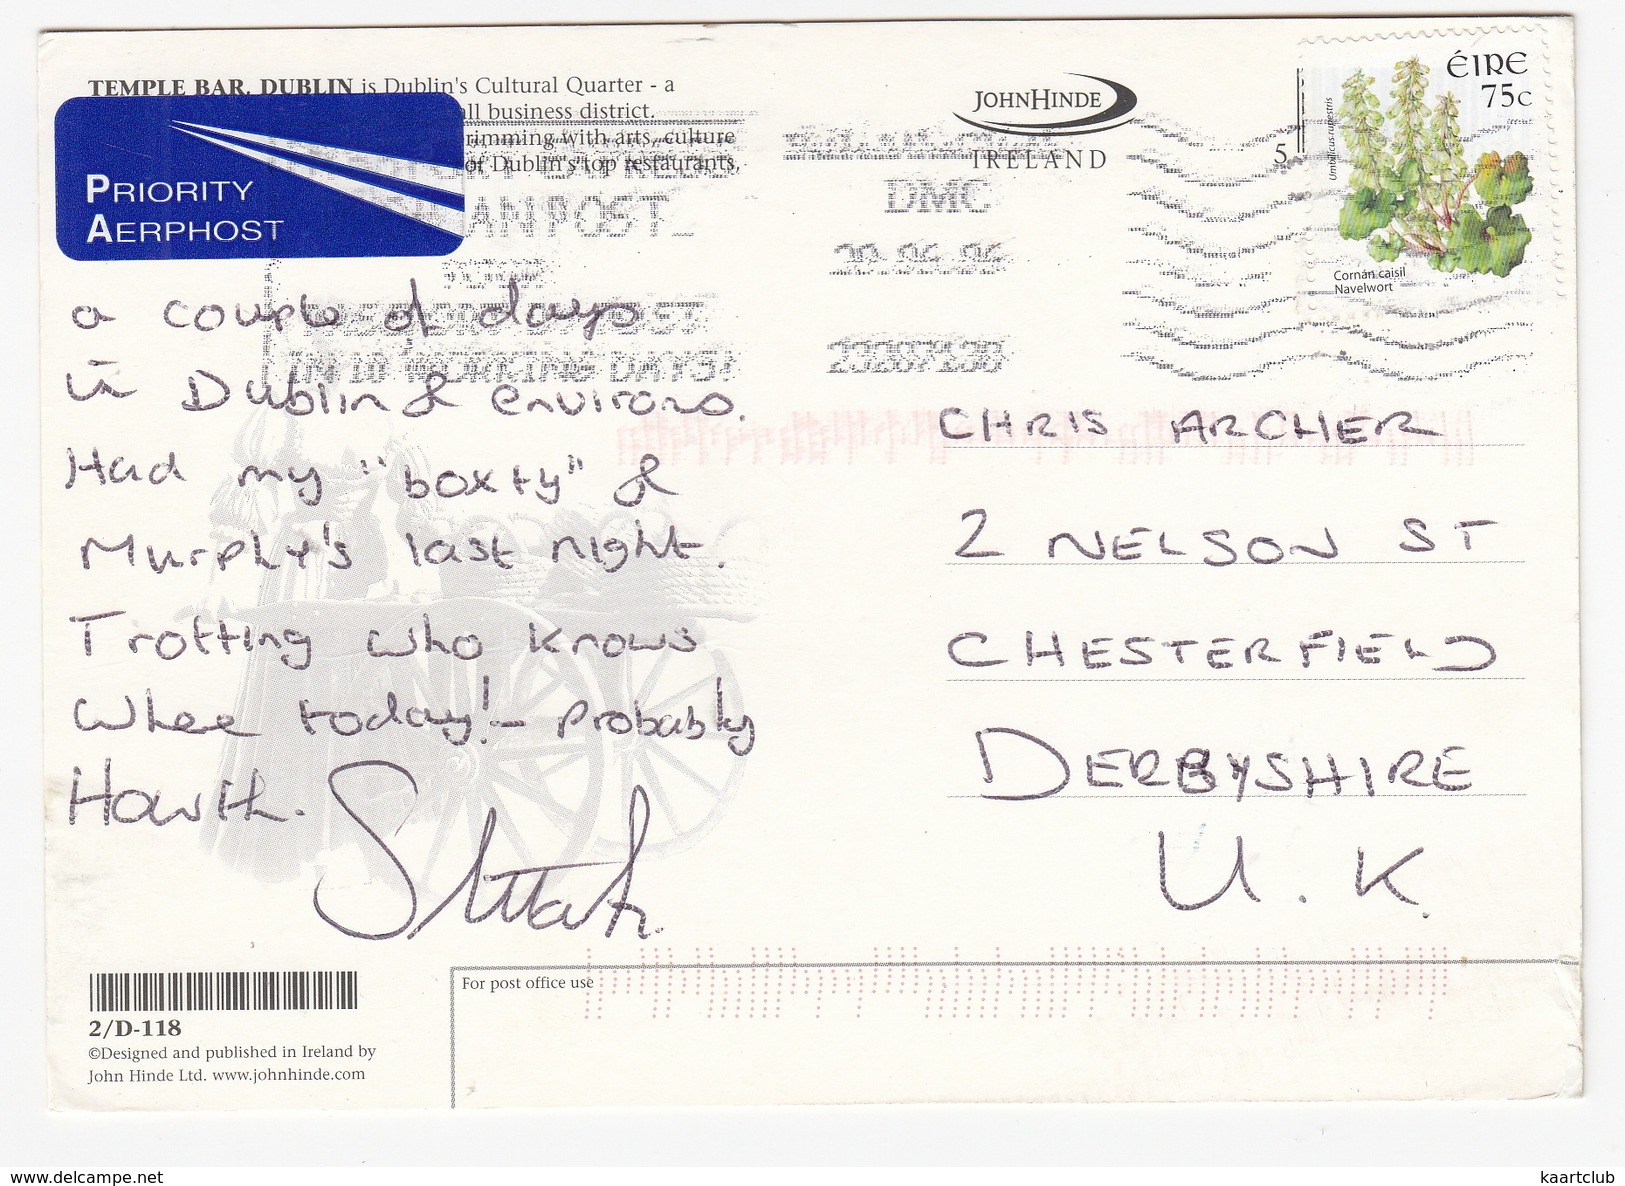 TEMPLE BAR, DUBLIN is Dublin's Cultural Quarter - a
all business district.
rimming with arts, culture
of Dublin's top restaurants,
PRIORITY
AERPHOST
JOHNHINDE
IRELAND
5
ÉIRE
75c
Umbilicus rupestris
Cornán caisil
Navelwort
AN POST
DMC
IN 10 WORKING DAYS!
a couple of days
in Dublin & environs.
Had my "boxty" &
Murphy's last night.
Trotting who knows
Whee today! - probably
Howth.
CHRIS ARCHER
2 NELSON ST
CHESTERFIELD
DERBYSHIRE
U.K.
2/D-118
©Designed and published in Ireland by
John Hinde Ltd. www.johnhinde.com
For post office use
www.delcampe.net
kaartclub